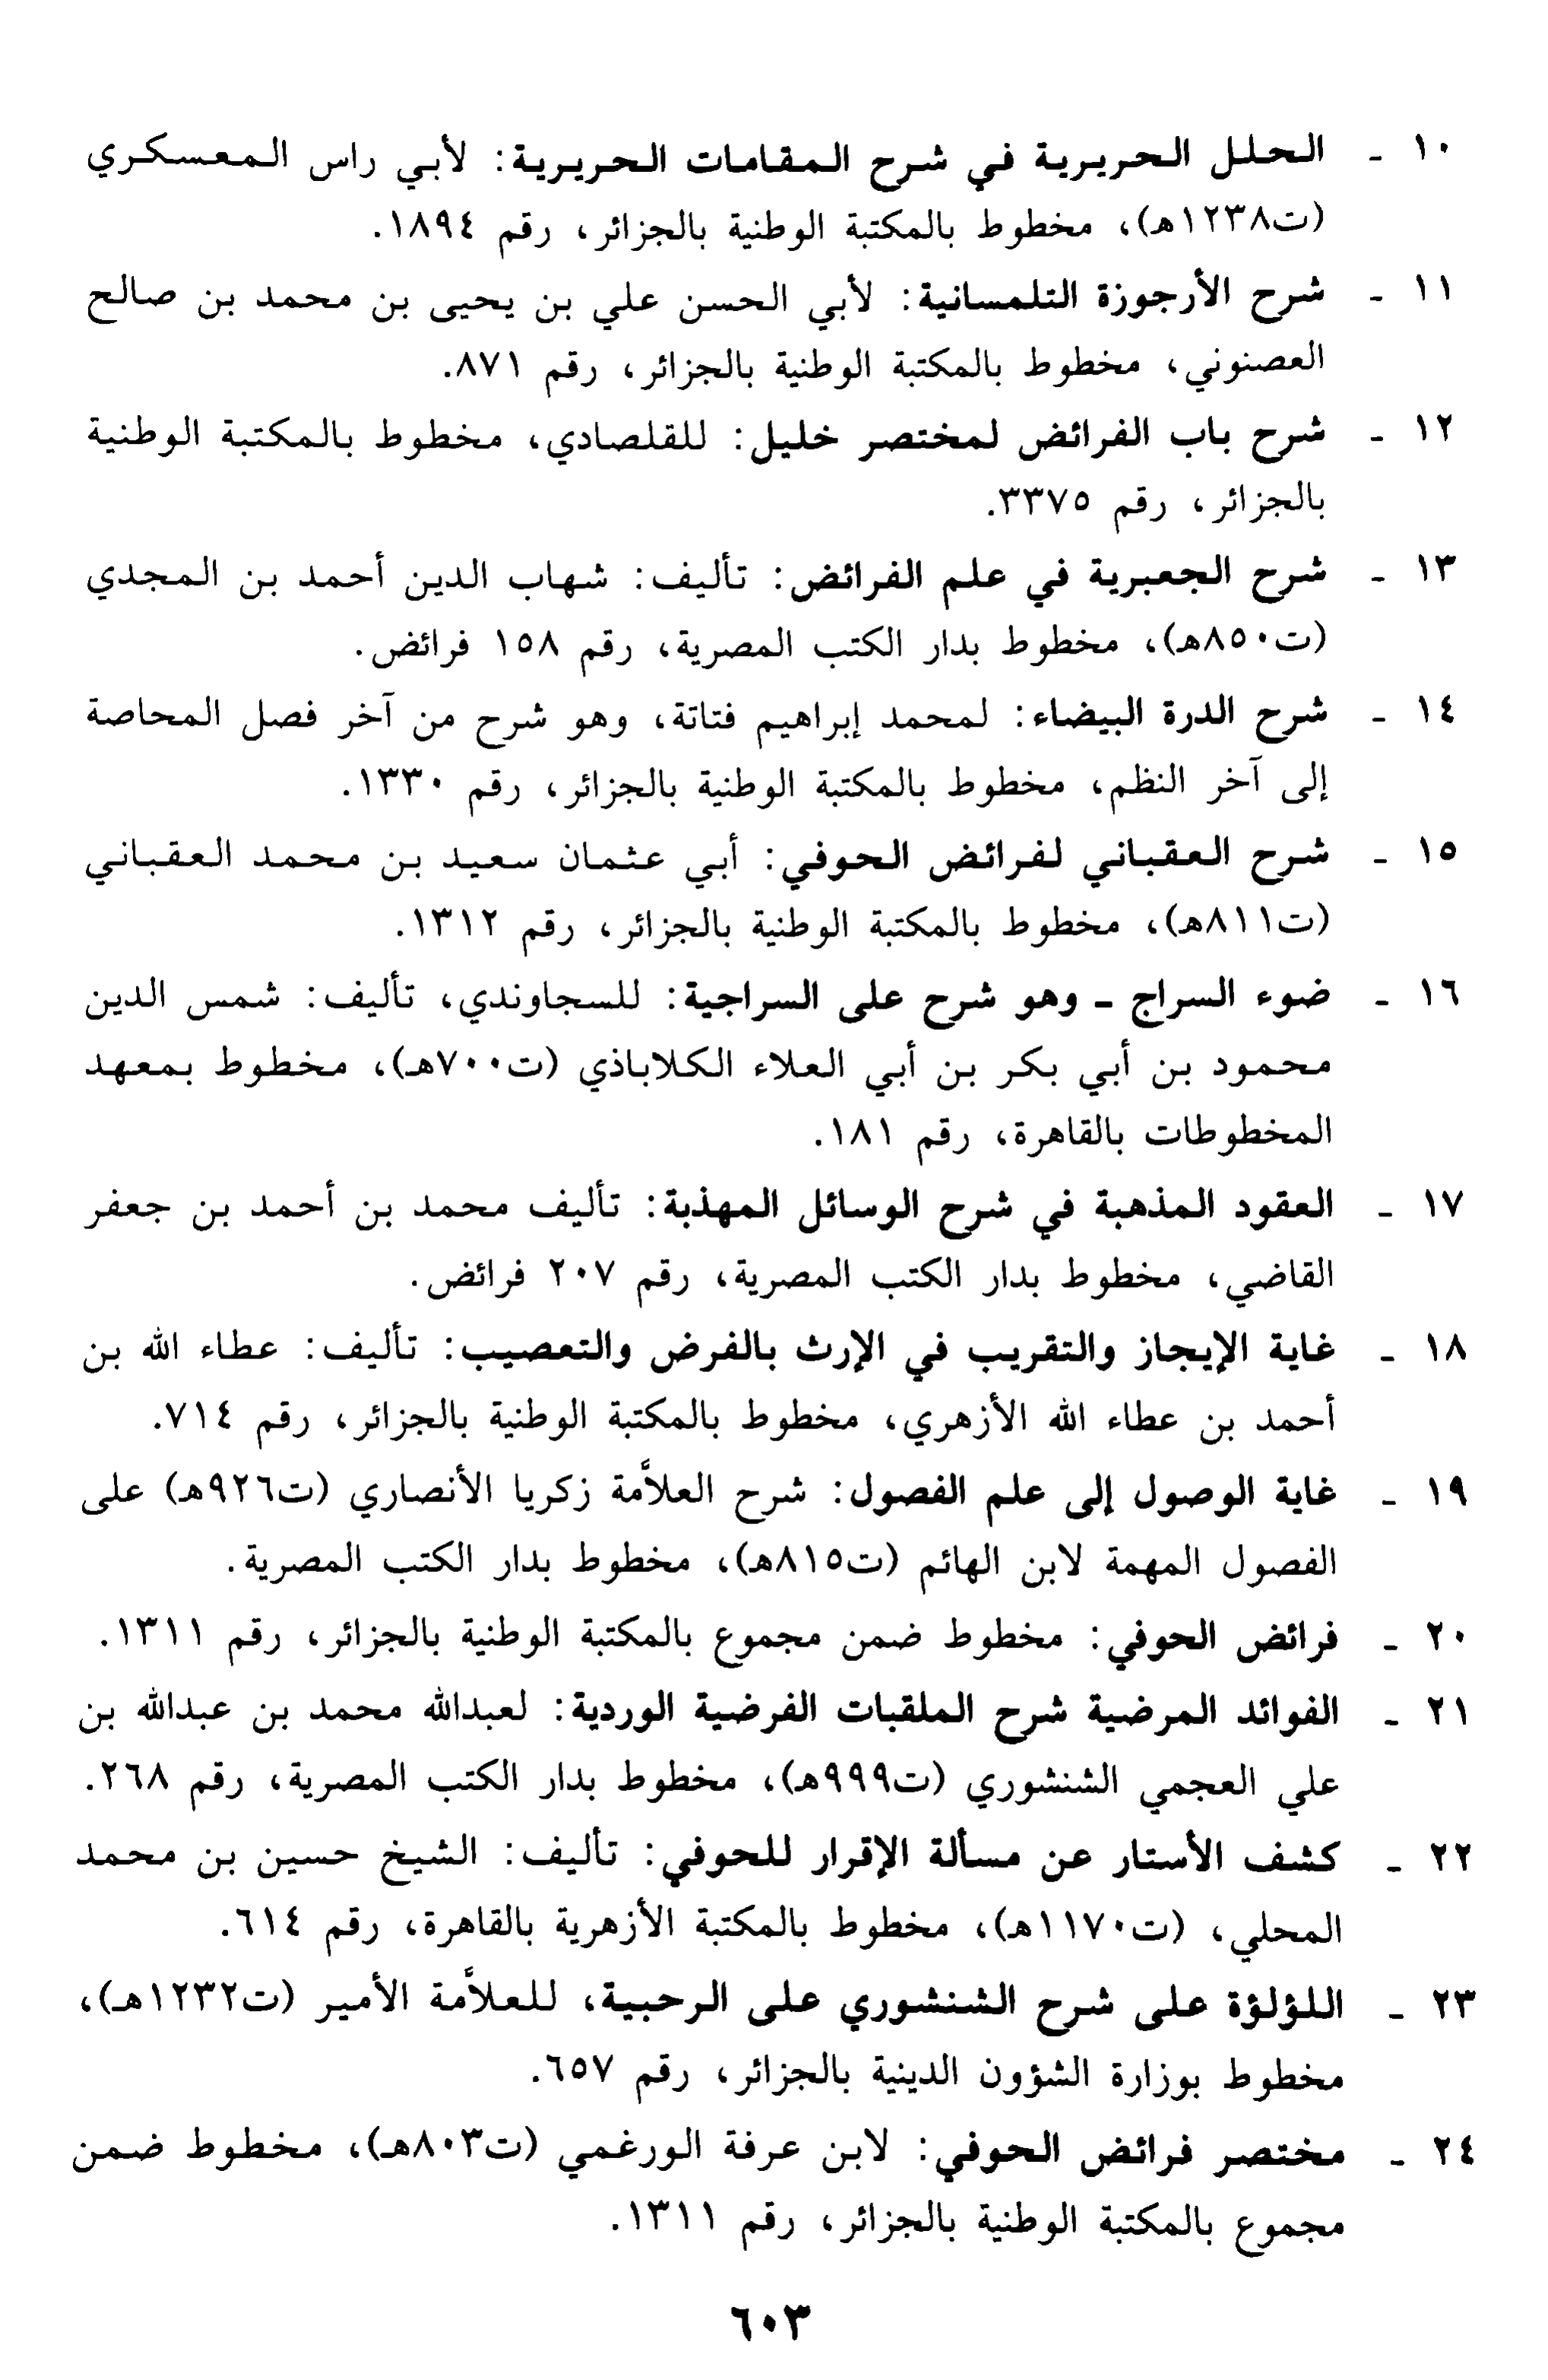 ١٠ - الحلل الحريرية في شرح المقامات الحريرية: لأبي راس المعسكري
(ت١٢٣٨هـ)، مخطوط بالمكتبة الوطنية بالجزائر، رقم ١٨٩٤.
١١ - شرح الأرجوزة التلمسانية: لأبي الحسن علي بن يحيى بن محمد بن صالح
العصنوني، مخطوط بالمكتبة الوطنية بالجزائر، رقم ٨٧١.
١٢ - شرح باب الفرائض لمختصر خليل: للقلصادي، مخطوط بالمكتبة الوطنية
بالجزائر، رقم ٣٣٧٥.
١٣ - شرح الجعبرية في علم الفرائض: تأليف: شهاب الدين أحمد بن المجدي
(ت٨٥٠هـ)، مخطوط بدار الكتب المصرية، رقم ١٥٨ فرائض.
١٤ - شرح الدرة البيضاء: لمحمد إبراهيم فتاتة، وهو شرح من آخر فصل المحاصة
إلى آخر النظم، مخطوط بالمكتبة الوطنية بالجزائر، رقم ١٣٣٠.
١٥ - شرح العقباني لفرائض الحوفي: أبي عثمان سعيد بن محمد العقباني
(ت٨١١هـ)، مخطوط بالمكتبة الوطنية بالجزائر، رقم ١٣١٢.
١٦ - ضوء السراج - وهو شرح على السراجية: للسجاوندي، تأليف: شمس الدين
محمود بن أبي بكر بن أبي العلاء الكلاباذي (ت٧٠٠هـ)، مخطوط بمعهد
المخطوطات بالقاهرة، رقم ١٨١.
١٧ - العقود المذهبة في شرح الوسائل المهذبة: تأليف محمد بن أحمد بن جعفر
القاضي، مخطوط بدار الكتب المصرية، رقم ٢٠٧ فرائض.
١٨ - غاية الإيجاز والتقريب في الإرث بالفرض والتعصيب: تأليف: عطاء الله بن
أحمد بن عطاء الله الأزهري، مخطوط بالمكتبة الوطنية بالجزائر، رقم ٧١٤.
١٩ - غاية الوصول إلى علم الفصول: شرح العلاَّمة زكريا الأنصاري (ت٩٢٦هـ) على
الفصول المهمة لابن الهائم (ت٨١٥هـ)، مخطوط بدار الكتب المصرية.
٢٠ - فرائض الحوفي: مخطوط ضمن مجموع بالمكتبة الوطنية بالجزائر، رقم ١٣١١.
٢١ - الفوائد المرضية شرح الملقبات الفرضية الوردية: لعبدالله محمد بن عبدالله بن
علي العجمي الشنشوري (ت٩٩٩هـ)، مخطوط بدار الكتب المصرية، رقم ٢٦٨.
٢٢ - كشف الأستار عن مسألة الإقرار للحوفي: تأليف: الشيخ حسين بن محمد
المحلي، (ت١١٧٠هـ)، مخطوط بالمكتبة الأزهرية بالقاهرة، رقم ٦١٤.
٢٣ - اللؤلؤة على شرح الشنشوري على الرحبية، للعلاَّمة الأمير (ت١٢٣٢هـ)،
مخطوط بوزارة الشؤون الدينية بالجزائر، رقم ٦٥٧.
٢٤ - مختصر فرائض الحوفي: لابن عرفة الورغمي (ت٨٠٣هـ)، مخطوط ضمن
مجموع بالمكتبة الوطنية بالجزائر، رقم ١٣١١.
٦٠٣